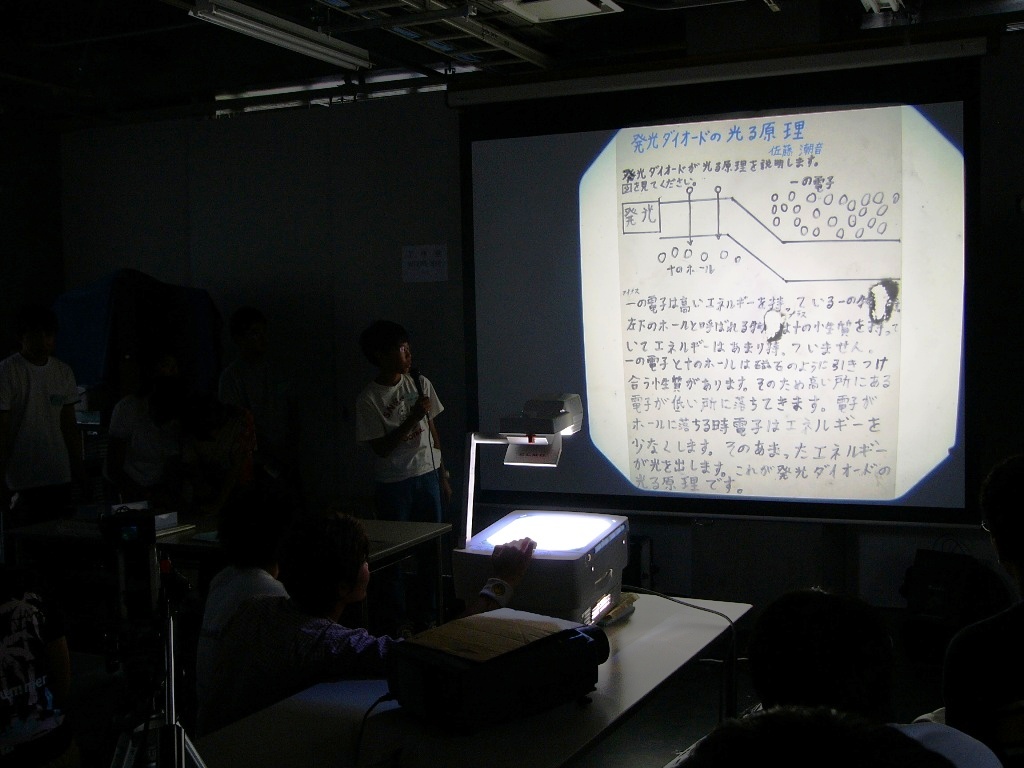 発光ダイオードの光る原理
佐藤 潮音
発光ダイオードが光る原理を説明します。
図を見てください。
一の電子
発光
十のホール
マイナス
一の電子は高いエネルギーを持っている一の
プラス
左下のホールと呼ばれる は十の小生質を持って
いてエネルギーはあまり持っていません。
一の電子と十のホールは磁石のように引きつけ
合う小生質があります。そのため高い所にある
電子が低い所に落ちてきます。電子が
ホールに落ちる時電子はエネルギーを
少なくします。そのあまったエネルギー
が光を出します。これが発光ダイオードの
光る原理です。
ummer